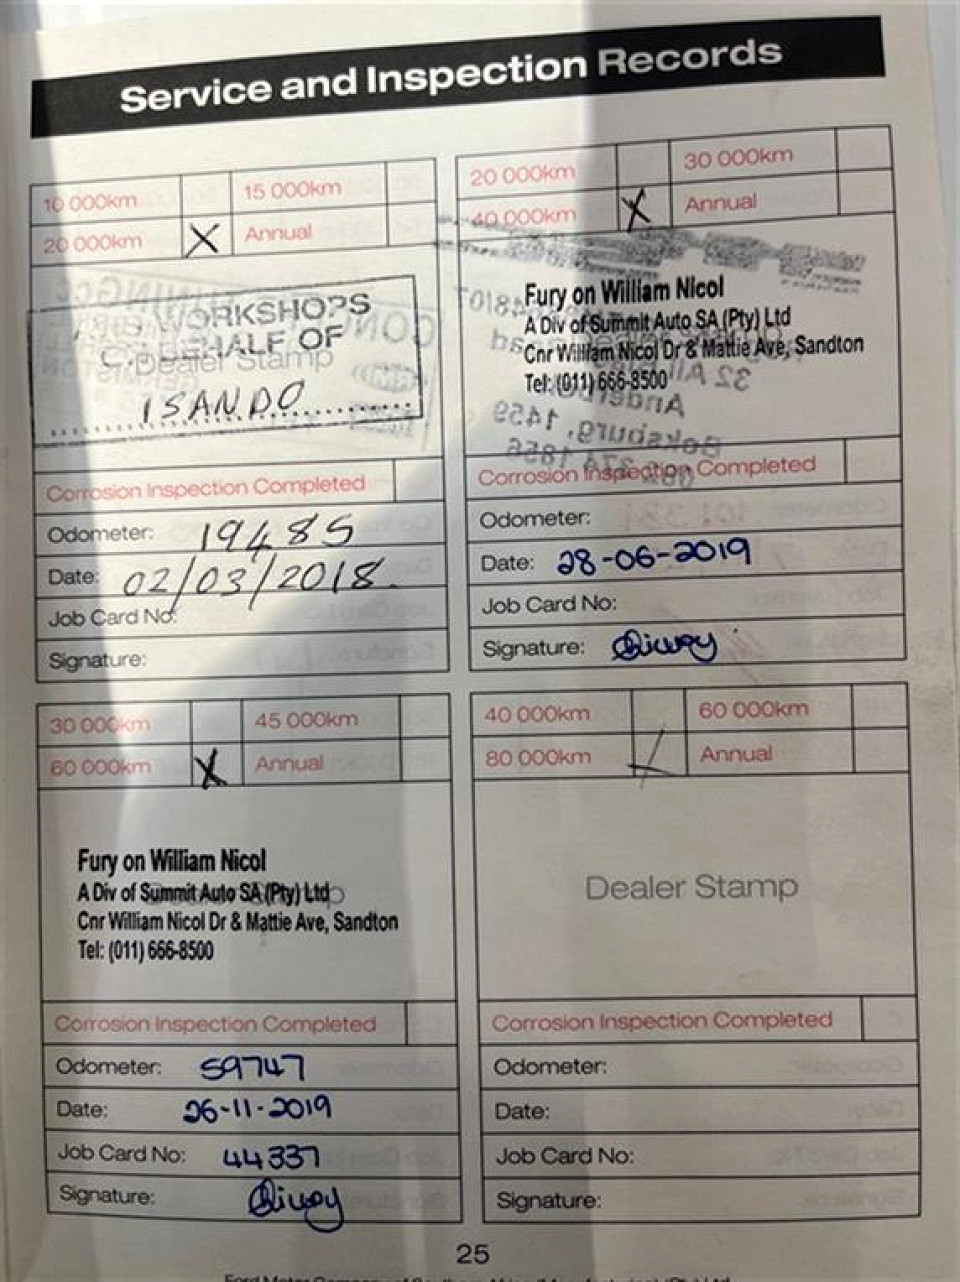 Service and Inspection Records
10 000km 15 000km
20 000km X Annual
WORKSHOPS
BEHALF OF
Dealer Stamp
ISANDO
Corrosion Inspection Completed
Odometer: 19485
Date: 02/03/2018
Job Card No:
Signature:
20 000km 30 000km
40 000km X Annual
Fury on William Nicol
A Div of Summit Auto SA (Pty) Ltd
Cnr William Nicol Dr & Mattie Ave, Sandton
Tel: (011) 666-8500
Corrosion Inspection Completed
Odometer:
Date: 28-06-2019
Job Card No:
Signature:
30 000km 45 000km
60 000km X Annual
Fury on William Nicol
A Div of Summit Auto SA (Pty) Ltd
Cnr William Nicol Dr & Mattie Ave, Sandton
Tel: (011) 666-8500
Corrosion Inspection Completed
Odometer: 59747
Date: 26-11-2019
Job Card No: 44337
Signature:
40 000km 60 000km
80 000km Annual
Dealer Stamp
Corrosion Inspection Completed
Odometer:
Date:
Job Card No:
Signature:
25